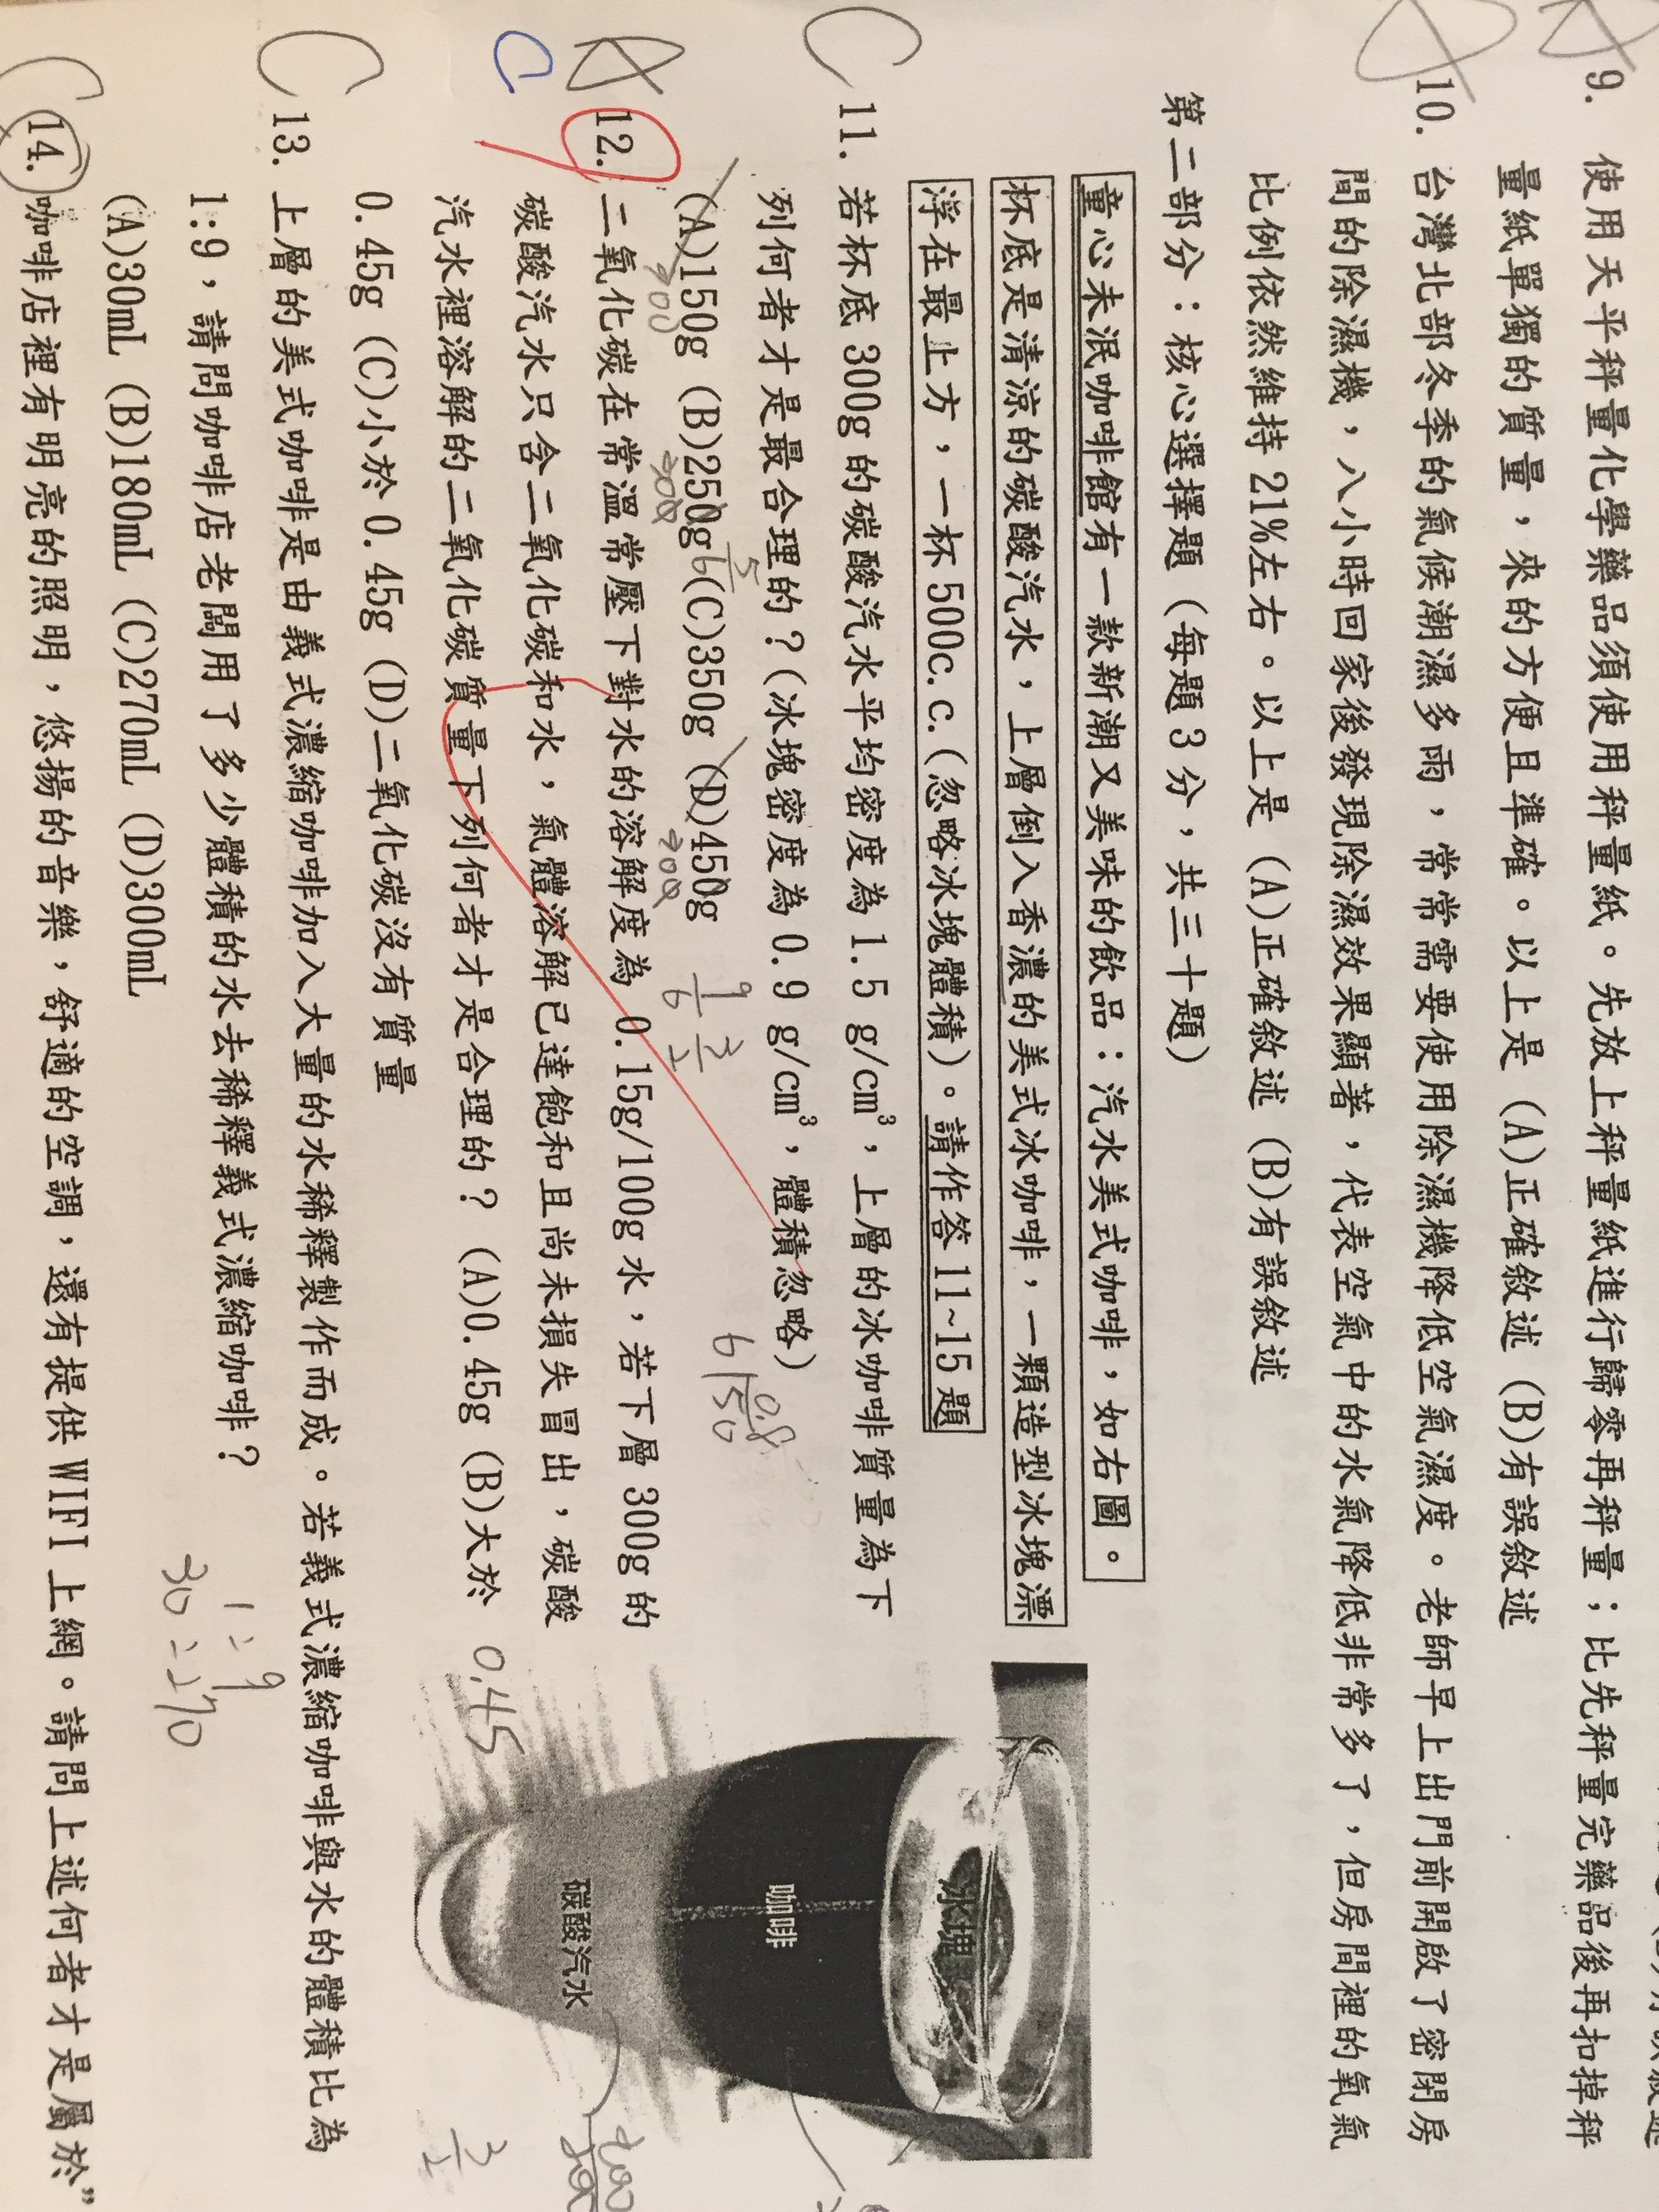 9. 使用天平秤量化學藥品須使用秤量紙。先放上秤量紙進行歸零再秤量；比先秤量完藥品後再扣掉秤
量紙單獨的質量，來的方便且準確。以上是 (A)正確敘述 (B)有誤敘述
10. 台灣北部冬季的氣候潮濕多雨，常常需要使用除濕機降低空氣濕度。老師早上出門前開啟了密閉房
間的除濕機，八小時回家後發現除濕效果顯著，代表空氣中的水氣降低非常多了，但房間裡的氧氣
比例依然維持 21%左右。以上是 (A)正確敘述 (B)有誤敘述
第二部分：核心選擇題 (每題 3 分，共三十題)
童心未泯咖啡館有一款新潮又美味的飲品：汽水美式咖啡，如右圖。
杯底是清涼的碳酸汽水，上層倒入香濃的美式冰咖啡，一顆造型冰塊漂
浮在最上方，一杯 500c.c.(忽略冰塊體積)。請作答 11~15 題
C
11. 若杯底 300g 的碳酸汽水平均密度為 1.5 g/cm³，上層的冰咖啡質量為下
列何者才是最合理的？(冰塊密度為 0.9 g/cm³，體積忽略)
(A)150g (B)250g (C)350g (D)450g
A
C
12. 二氧化碳在常溫常壓下對水的溶解度為 0.15g/100g 水，若下層 300g 的
碳酸汽水只含二氧化碳和水，氣體溶解已達飽和且尚未損失冒出，碳酸
汽水裡溶解的二氧化碳質量下列何者才是合理的？ (A)0.45g (B)大於
0.45g (C)小於 0.45g (D)二氧化碳沒有質量
0.45
冰塊
咖啡
碳酸汽水
C
13. 上層的美式咖啡是由義式濃縮咖啡加入大量的水稀釋製作而成。若義式濃縮咖啡與水的體積比為
1:9，請問咖啡店老闆用了多少體積的水去稀釋義式濃縮咖啡？
(A)30mL (B)180mL (C)270mL (D)300mL
1:9
30:270
C
14. 咖啡店裡有明亮的照明，悠揚的音樂，舒適的空調，還有提供 WIFI 上網。請問上述何者才是屬於”